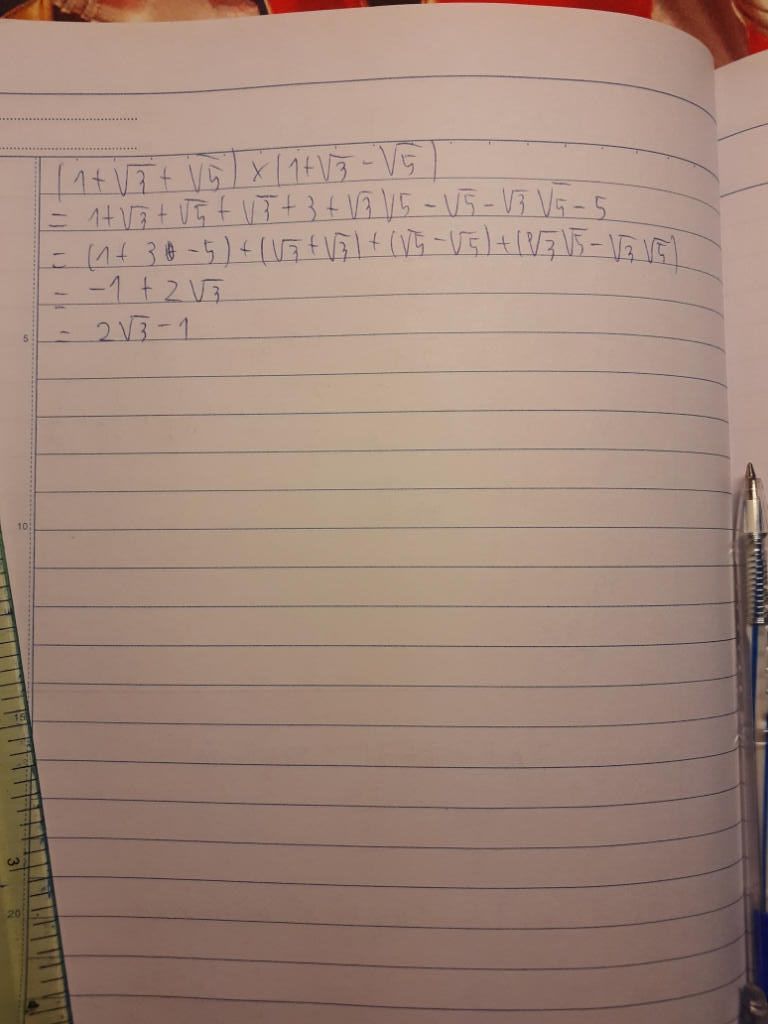 (1+√3+√5)×(1+√3-√5)
= 1+√3+√5+√3+3+√3√5-√5-√3√5-5
= (1+3-5)+(√3+√3)+(√5-√5)+(√3√5-√3√5)
= -1+2√3
= 2√3-1
5
10
15
20
3
4